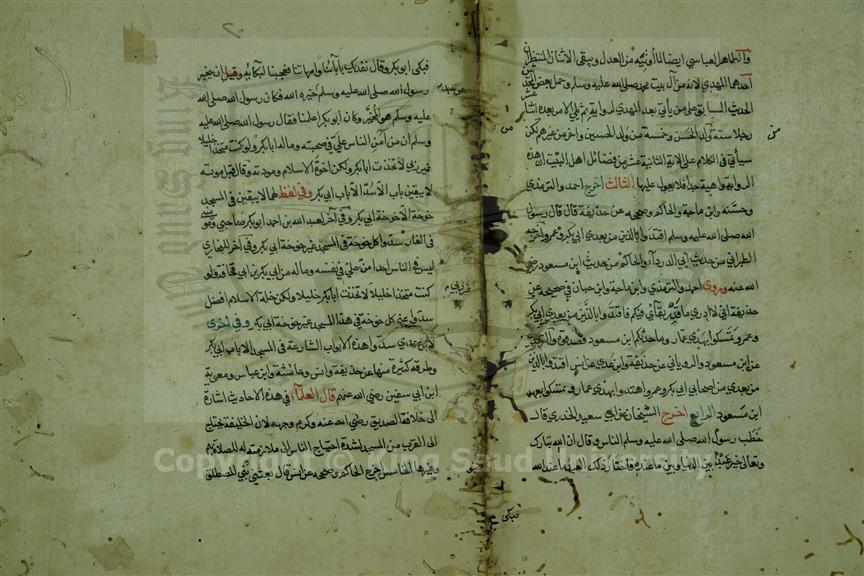 والطاهر العباسي ايضا لما أوتيه من العدل ويبقى الاثنان المنتظران
أحدهما المهدي لانه من آل بيت محمد صلى الله عليه وسلم وحمل بعض المحدثين
الحديث السابق على من يأتي بعد المهدي
رجلا ستة ولد الحسن وخمسة من ولد الحسين واخر من غيرهم لكن
سيأتي في الكلام على الاية الثانية عشر من فضائل اهل البيت ان هذه
الرواية واهية جدا فلا يعول عليها الثالث أخرج احمد والترمذي
وحسنه وابن ماجة والحاكم وصححه عن حذيفة قال قال رسول
الله صلى الله عليه وسلم اقتدوا بالذين من بعدي ابي بكر وعمر واخرجه
الطبراني من حديث ابي الدرداء والحاكم من حديث ابن مسعود رضي
الله عنه وروى احمد والترمذي وابن ماجة وابن حبان في صحيحه عن
حذيفة اني لا ادري ما قدر بقائي فيكم فاقتدوا بالذين من بعدي ابي بكر
وعمر وتمسكوا بهدي عمار وما حدثكم ابن مسعود فصدقوه والترمذي
عن ابن مسعود والروياني عن حذيفة وابن عدي عن انس اقتدوا بالذين
من بعدي من اصحابي ابي بكر وعمر واهتدوا بهدي عمار وتمسكوا بعهد
ابن مسعود الرابع أخرج الشيخان عن ابي سعيد الخدري قال
خطب رسول الله صلى الله عليه وسلم الناس وقال ان الله تبارك
وتعالى خير عبدا بين الدنيا وبين ما عنده فاختار ذلك العبد ما عند الله
فبكى
فبكى ابو بكر وقال نفديك بآبائنا وامهاتنا فعجبنا لبكائه
رسول الله صلى الله عليه وسلم خيره الله فكان رسول الله صلى الله
عليه وسلم هو المخير وكان ابو بكر اعلمنا فقال رسول الله صلى الله عليه
وسلم ان من آمن الناس علي في صحبته وماله ابا بكر ولو كنت متخذا خليلا
غير ربي لاتخذت ابا بكر ولكن اخوة الاسلام ومودته
لا يبقين باب الا سد الا باب ابي بكر وفي لفظ لهما لا يبقين في المسجد
خوخة الا خوخة ابي بكر وفي آخر لعبد الله بن احمد ابو بكر صاحبي ومونسي
في الغار سدوا كل خوخة في المسجد غير خوخة ابي بكر وفي آخر للبخاري
ليس في الناس احد امن علي في نفسه وماله من ابي بكر بن ابي قحافة ولو
كنت متخذا خليلا لاتخذت ابا بكر خليلا ولكن خلة الاسلام افضل
سدوا عني كل خوخة في هذا المسجد غير خوخة ابي بكر وفي أخرى
لابن عدي سدوا هذه الابواب الشارعة في المسجد الا باب ابي بكر
وطرقه كثيرة منها عن حذيفة وانس وعائشة وابن عباس ومعوية
ابن ابي سفين رضي الله عنهم قال العلماء في هذه الاحاديث اشارة
الى خلافة الصديق رضي الله عنه وكرم وجهه لان الخليفة يحتاج
الى القرب من المسجد لشدة احتياج الناس الى ملازمته له للصلاة بهم
وغيرها الخامس خرج الحاكم وصححه عن انس قال بعثني بنو المصطلق
Copyright © King Saud University